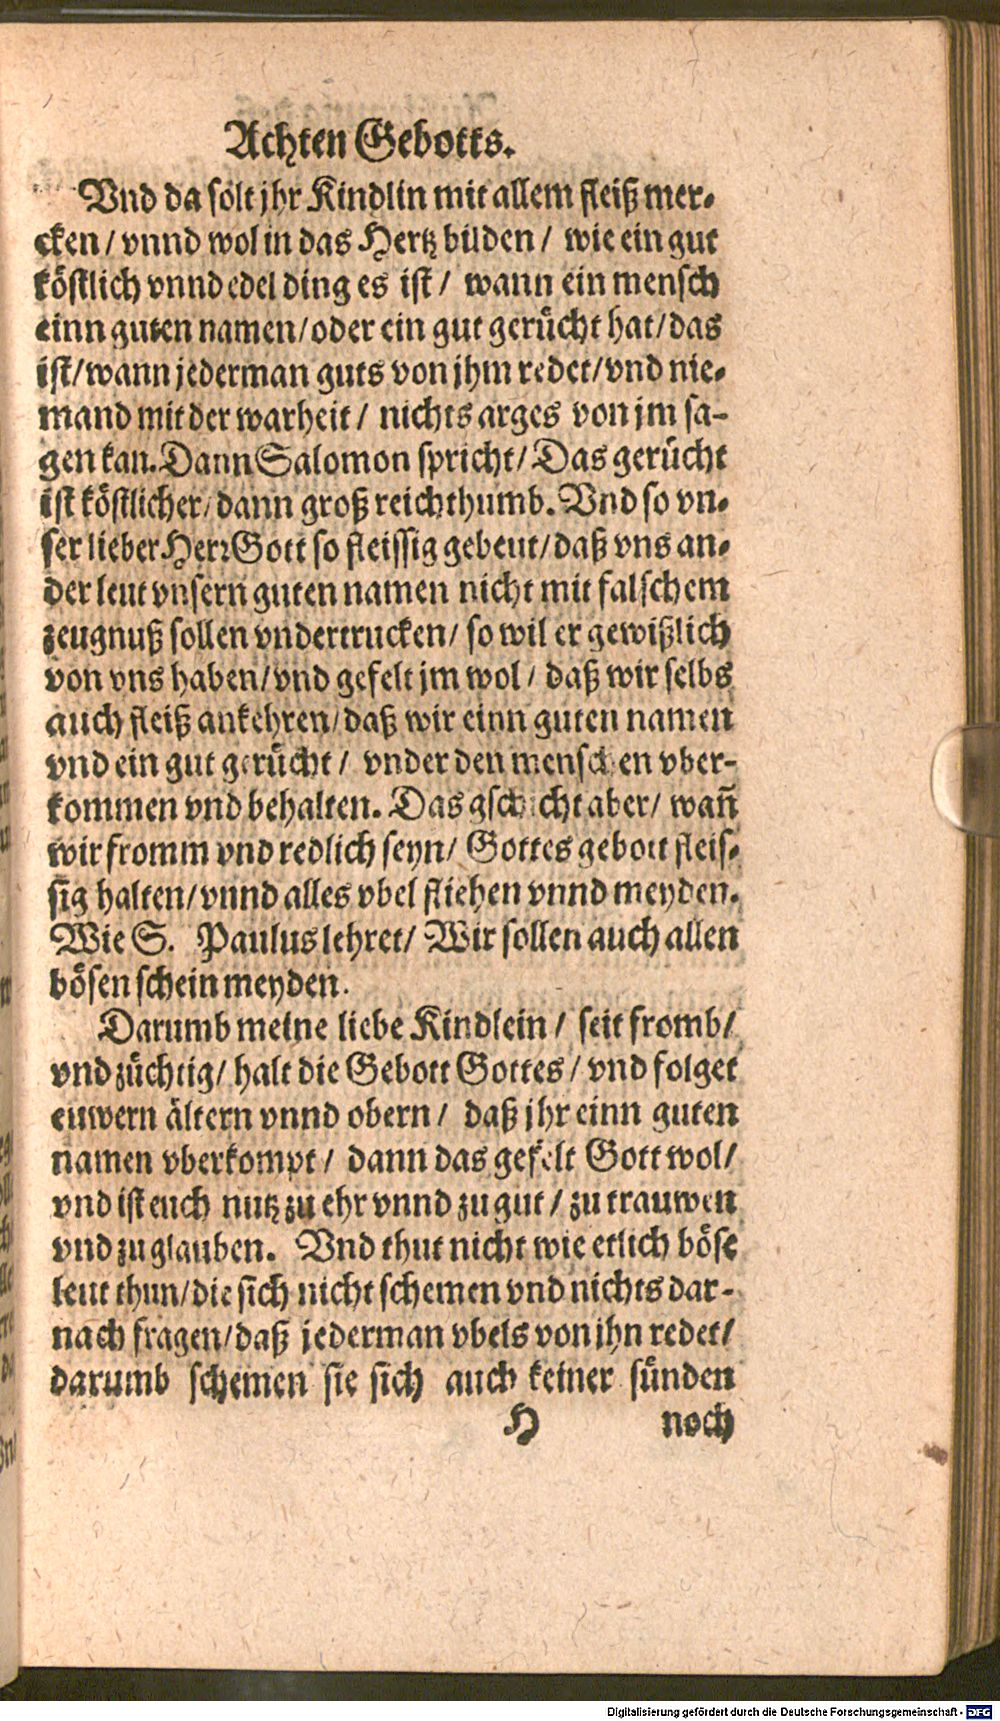 Achten Gebotts.
Vnd da solt jhr Kindlin mit allem fleiß mer-
cken / vnnd wol in das Hertz bilden / wie ein gut
köstlich vnnd edel ding es ist / wann ein mensch
einn guten namen/oder ein gut gerücht hat/das
ist/wann jederman guts von jhm redet/vnd nie-
mand mit der warheit / nichts arges von jm sa-
gen kan. Dann Salomon spricht/ Das gerücht
ist köstlicher/dann groß reichthumb. Vnd so vn-
ser lieber Herr Gott so fleissig gebeut/daß vns an-
der leut vnsern guten namen nicht mit falschem
zeugnuß sollen vndertrucken/ so wil er gewißlich
von vns haben/vnd gefelt jm wol / daß wir selbs
auch fleiß ankehren/daß wir einn guten namen
vnd ein gut gerücht / vnder den menschen vber-
kommen vnd behalten. Das gschicht aber/ wañ
wir fromm vnd redlich seyn/ Gottes gebott fleis-
sig halten/vnnd alles vbel fliehen vnnd meyden.
Wie S. Paulus lehret/ Wir sollen auch allen
bösen schein meyden.
Darumb meine liebe Kindlein / seit fromb/
vnd züchtig/ halt die Gebott Gottes / vnd folget
euwern ältern vnnd obern / daß jhr einn guten
namen vberkompt / dann das gefelt Gott wol/
vnd ist euch nutz zu ehr vnnd zu gut / zu trauwen
vnd zu glauben. Vnd thut nicht wie etlich böse
leut thun/die sich nicht schemen vnd nichts dar-
nach fragen/daß jederman vbels von jhn redet/
darumb schemen sie sich auch keiner sünden
H noch
Digitalisierung gefördert durch die Deutsche Forschungsgemeinschaft - DFG